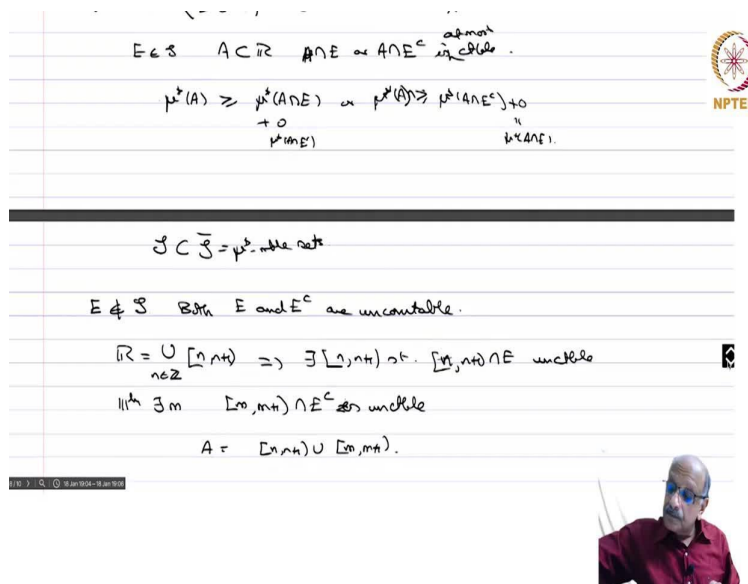 E ∈ S A ⊂ ℝ A∩E or A∩Eᶜ is atmost ctble.
μ*(A) ≥ μ*(A∩E) or μ*(A) ≥ μ*(A∩Eᶜ) + 0
+ 0
μ*(A∩Eᶜ)
"
μ*(A∩E).
NPTE
S ⊂ S̄ = μ*-mble sets
E ∉ S Both E and Eᶜ are uncountable.
ℝ = ∪ [n, n+1) ⇒ ∃ [n, n+1) st. [n, n+1) ∩ E unctble
n∈ℤ
|||ly ∃ m [m, m+1) ∩ Eᶜ is unctble
A = [n, n+1) ∪ [m, m+1).
/10 18 Jan 19:04 – 18 Jan 19:06